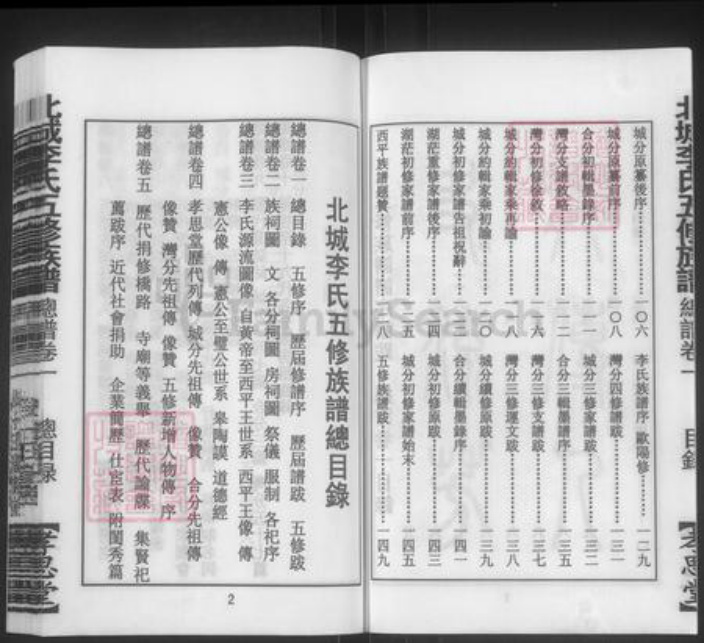 城分原纂後序……一〇六
城分原纂前序……一〇八
合分初輯墨錄序……一一一
灣分支譜敘略……一一二
灣分初修徐敘……一一六
城分約輯家乘再論……一一八
城分約輯家乘初論……一二〇
城分初修家譜告祖祝辭……一二一
湖茫重修家譜後序……一二四
湖茫初修家譜前序……一二五
西平族譜題贊……一二八
李氏族譜序 歐陽修……一二九
灣分四修譜跋……一三一
城分三修家譜跋……一三二
合分三輯墨譜序……一三五
灣分三修支譜跋……一三七
灣分三修運文跋……一三八
城分續修原跋……一三九
合分續輯墨錄序……一四一
城分初修原跋……一四三
城分初修家譜始末……一四五
五修族譜跋……一四九
北城李氏五修族譜總目錄
總譜卷一 總目錄 五修序 歷屆修譜序 歷屆譜跋 五修跋
總譜卷二 族祠圖 文 各分祠圖 房祠圖 祭儀 服制 各祀序
總譜卷三 李氏源流圖像 自黃帝至西平王世系 西平王像 傳
憲公像 傳 憲公至璧公世系 皋陶謨 道德經
總譜卷四 孝思堂歷代列傳 城分先祖傳 像贊 合分先祖傳
像贊 灣分先祖傳 像贊 五修新增人物傳 序
總譜卷五 歷代捐修橋路 寺廟等義舉 歷代論諜 集賢祀
萬跋序 近代社會捐助 企業簡歷 仕宦表 附閨秀篇
2
北城李氏五修族譜 總譜卷一 總目錄 【孝思堂】
北城李氏五修族譜 總譜卷一 目錄 【孝思堂】
FamilySearch